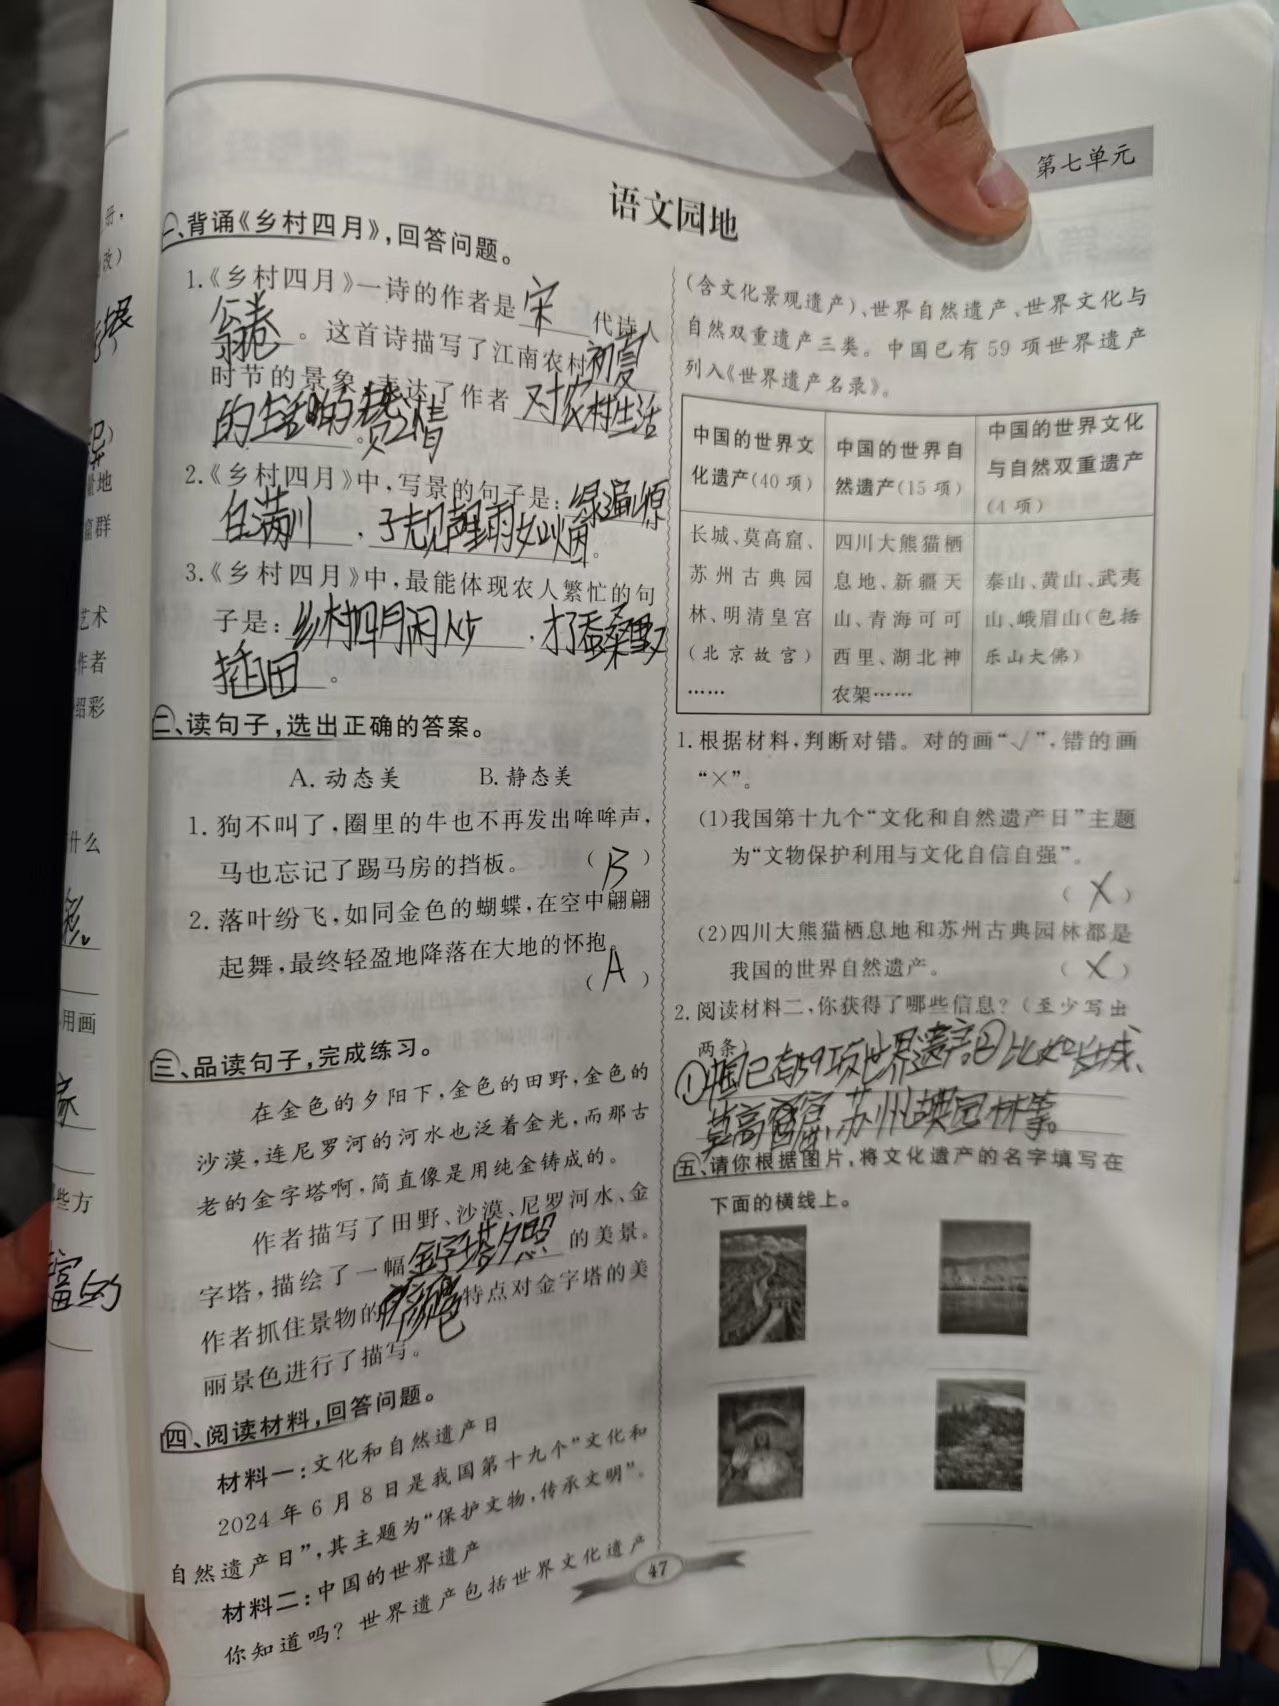 第七单元
语文园地
册,
改)
量地
篇群
艺术
作者
绍彩
什么
用画
些方
富的
一、背诵《乡村四月》,回答问题。
1.《乡村四月》一诗的作者是 宋 代诗人
翁卷 。这首诗描写了江南农村 初夏
时节的景象,表达了作者 对农村生活
的 赞美之情 。
2.《乡村四月》中,写景的句子是: 绿遍山原
白满川 , 子规声里雨如烟 。
3.《乡村四月》中,最能体现农人繁忙的句
子是: 乡村四月闲人少 , 才了蚕桑又
插田 。
二、读句子,选出正确的答案。
A. 动态美 B. 静态美
1. 狗不叫了,圈里的牛也不再发出哞哞声,
马也忘记了踢马房的挡板。 ( B )
2. 落叶纷飞,如同金色的蝴蝶,在空中翩翩
起舞,最终轻盈地降落在大地的怀抱。
( A )
三、品读句子,完成练习。
在金色的夕阳下,金色的田野,金色的
沙漠,连尼罗河的河水也泛着金光,而那古
老的金字塔啊,简直像是用纯金铸成的。
作者描写了田野、沙漠、尼罗河水、金
字塔,描绘了一幅 金字塔夕照 的美景。
作者抓住景物的 颜色 特点对金字塔的美
丽景色进行了描写。
四、阅读材料,回答问题。
材料一:文化和自然遗产日
2024 年 6 月 8 日是我国第十九个“文化和
自然遗产日”,其主题为“保护文物,传承文明”。
材料二:中国的世界遗产
你知道吗?世界遗产包括世界文化遗产
(含文化景观遗产)、世界自然遗产、世界文化与
自然双重遗产三类。中国已有 59 项世界遗产
列入《世界遗产名录》。
中国的世界文
化遗产(40 项)
中国的世界自
然遗产(15 项)
中国的世界文化
与自然双重遗产
(4 项)
长城、莫高窟、
苏州古典园
林、明清皇宫
(北京故宫)
……
四川大熊猫栖
息地、新疆天
山、青海可可
西里、湖北神
农架……
泰山、黄山、武夷
山、峨眉山(包括
乐山大佛)
1. 根据材料,判断对错。对的画“√”,错的画
“×”。
(1)我国第十九个“文化和自然遗产日”主题
为“文物保护利用与文化自信自强”。
( × )
(2)四川大熊猫栖息地和苏州古典园林都是
我国的世界自然遗产。 ( × )
2. 阅读材料二,你获得了哪些信息?(至少写出
两条)
①中国已有59项世界遗产。②比如长城、
莫高窟、苏州古典园林等。
五、请你根据图片,将文化遗产的名字填写在
下面的横线上。
47